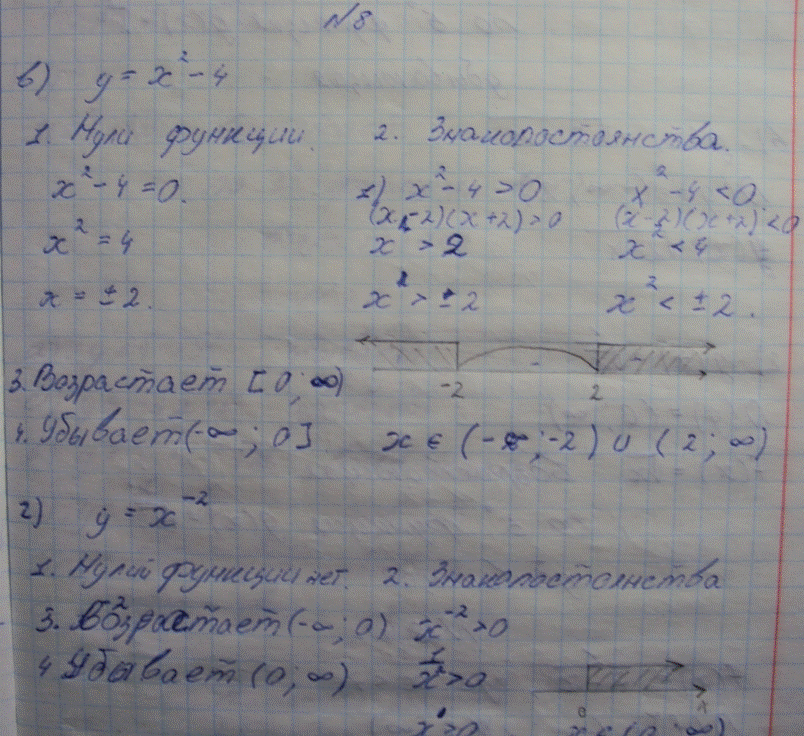 №8
в) y = x² - 4
1. Нули функции. 2. Знакопостоянства.
x² - 4 = 0. 1) x² - 4 > 0 x² - 4 < 0.
(x - 2)(x + 2) > 0 (x - 2)(x + 2) < 0
x² = 4 x > 2 x² < 4
x = ± 2. x² > ± 2 x² < ± 2.
-2 - 2
3. Возрастает [0; ∞)
4. Убывает (-∞; 0] x ∈ (-∞; -2) ∪ (2; ∞)
г) y = x⁻²
1. Нулий функции нет. 2. Знакопостоянства
3. Возрастает (-∞; 0) x⁻² > 0
4 Убывает (0; ∞) 1/x² > 0
0 x
x > 0 x ∈ (0; ∞)